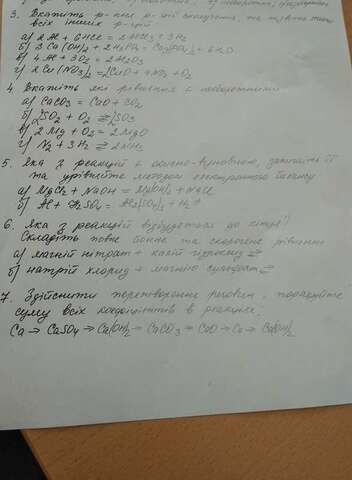 3. Вкажіть р-ння р-цій сполучення, та
всіх інших р-цій
а) 2Al + 6HCl = 2AlCl3 + 3H2
б) 3Ca(OH)2 + 2H3PO4 = Ca3(PO4)2 + 6H2O
в) 4Al + 3O2 = 2Al2O3
г) 2Cu(NO3)2 = 2CuO + 4NO2 + O2
4. Вкажіть які рівняння є необоротними
а) CaCO3 = CaO + CO2
б) 2SO2 + O2 ⇄ 2SO3
в) 2Mg + O2 = 2MgO
г) N2 + 3H2 ⇄ 2NH3
5. Яка з реакцій є окисно-відновною, запишіть її
та урівняйте методом електронного балансу
а) MgCl2 + NaOH = Mg(OH)2 + NaCl
б) Al + H2SO4 = Al2(SO4)3 + H2↑
6. Яка з реакцій відбудеться до кінця?
Складіть повне йонне та скорочене рівняння
а) магній нітрат + калій гідроксид ⇄
б) натрій хлорид + магнію сульфат ⇄
7. Здійснити перетворення речовин, порахуйте
суму всіх коефіцієнтів в реакціях:
Ca → CaSO4 → Ca(OH)2 → CaCO3 → CaO → Ca → Ca(OH)2